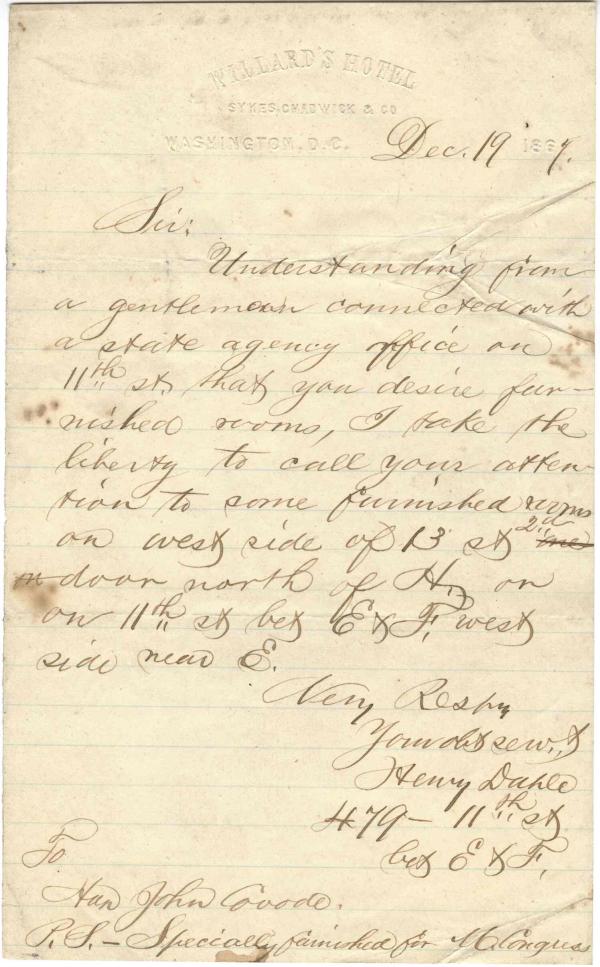 WILLARD'S HOTEL
SYKES, CHADWICK & CO
WASHINGTON, D.C. Dec. 19 1867.
Sir:
Understanding from
a gentleman connected with
a state agency office on
11th st. that you desire fur-
nished rooms, I take the
liberty to call your atten-
tion to some furnished rooms
on west side of 13 st 2d one
door north of H, or
on 11th st bet E & F, west
side near E.
Very Respy
Your obt servt
Henry Dahle
479 - 11th st
bet E & F,
To
Hon John Covode.
P.S. - Specially furnished for M. Congress